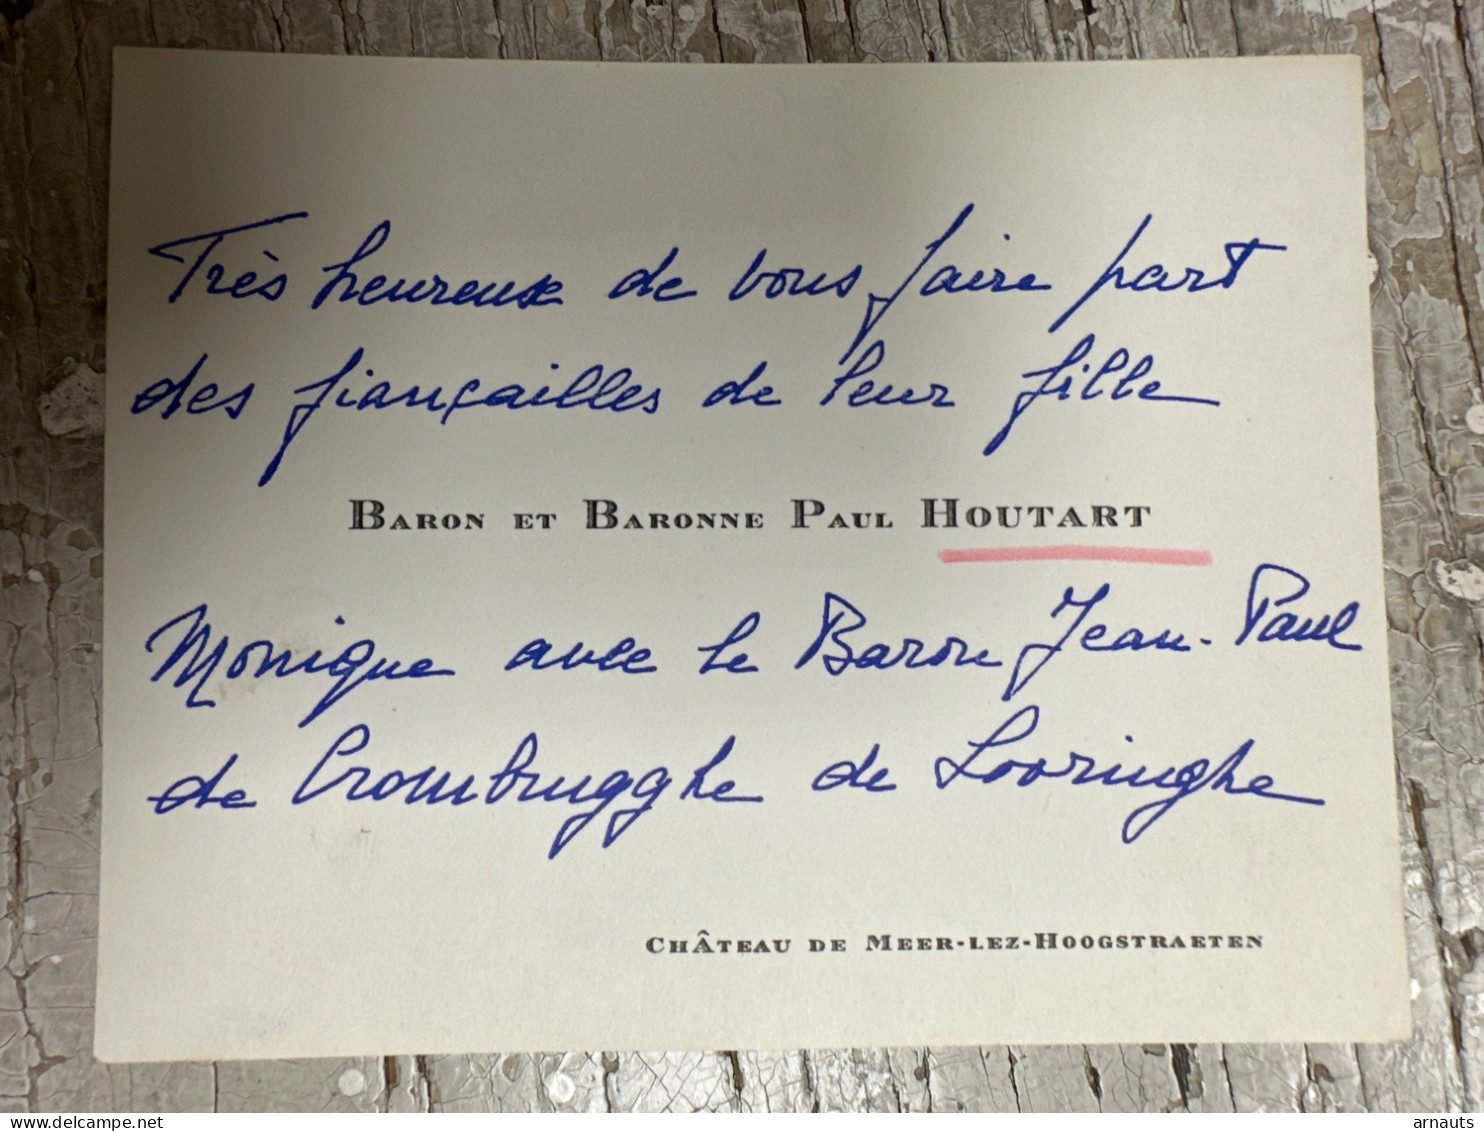 Très heureux de vous faire part
des fiançailles de leur fille
BARON ET BARONNE PAUL HOUTART
Monique avec le Baron Jean-Paul
de Crombrugghe de Looringhe
CHÂTEAU DE MEER-LEZ-HOOGSTRAETEN
delcampe.net
arnauts